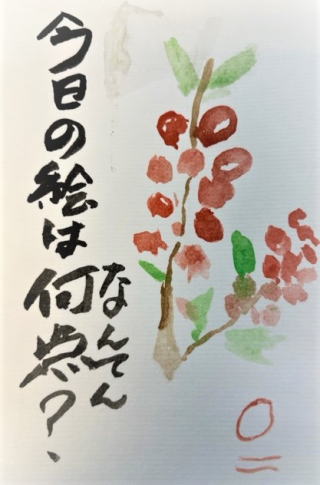 今日の絵は
何点?、
なんてん